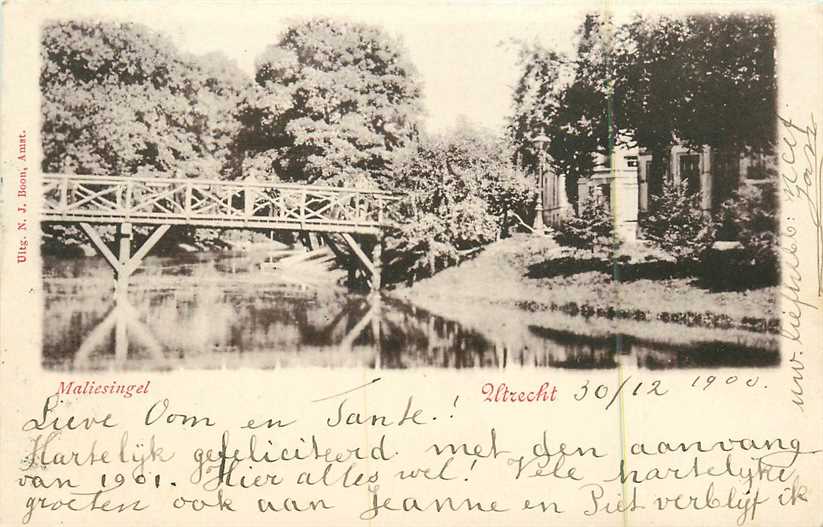 Uitg. N. J. Boon, Amst.
Maliesingel
Utrecht 30/12 1900.
Lieve Oom en Tante!
Hartelijk gefeliciteerd met den aanvang
van 1901. Hier alles wel! Vele hartelijke
groeten ook aan Jeanne en Piet verblijf ik
uw liefhebb: neef